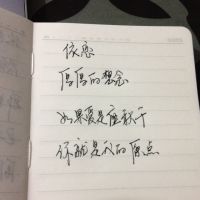 依恋
厚厚的想念
如果爱是座秋千
你就是我的原点